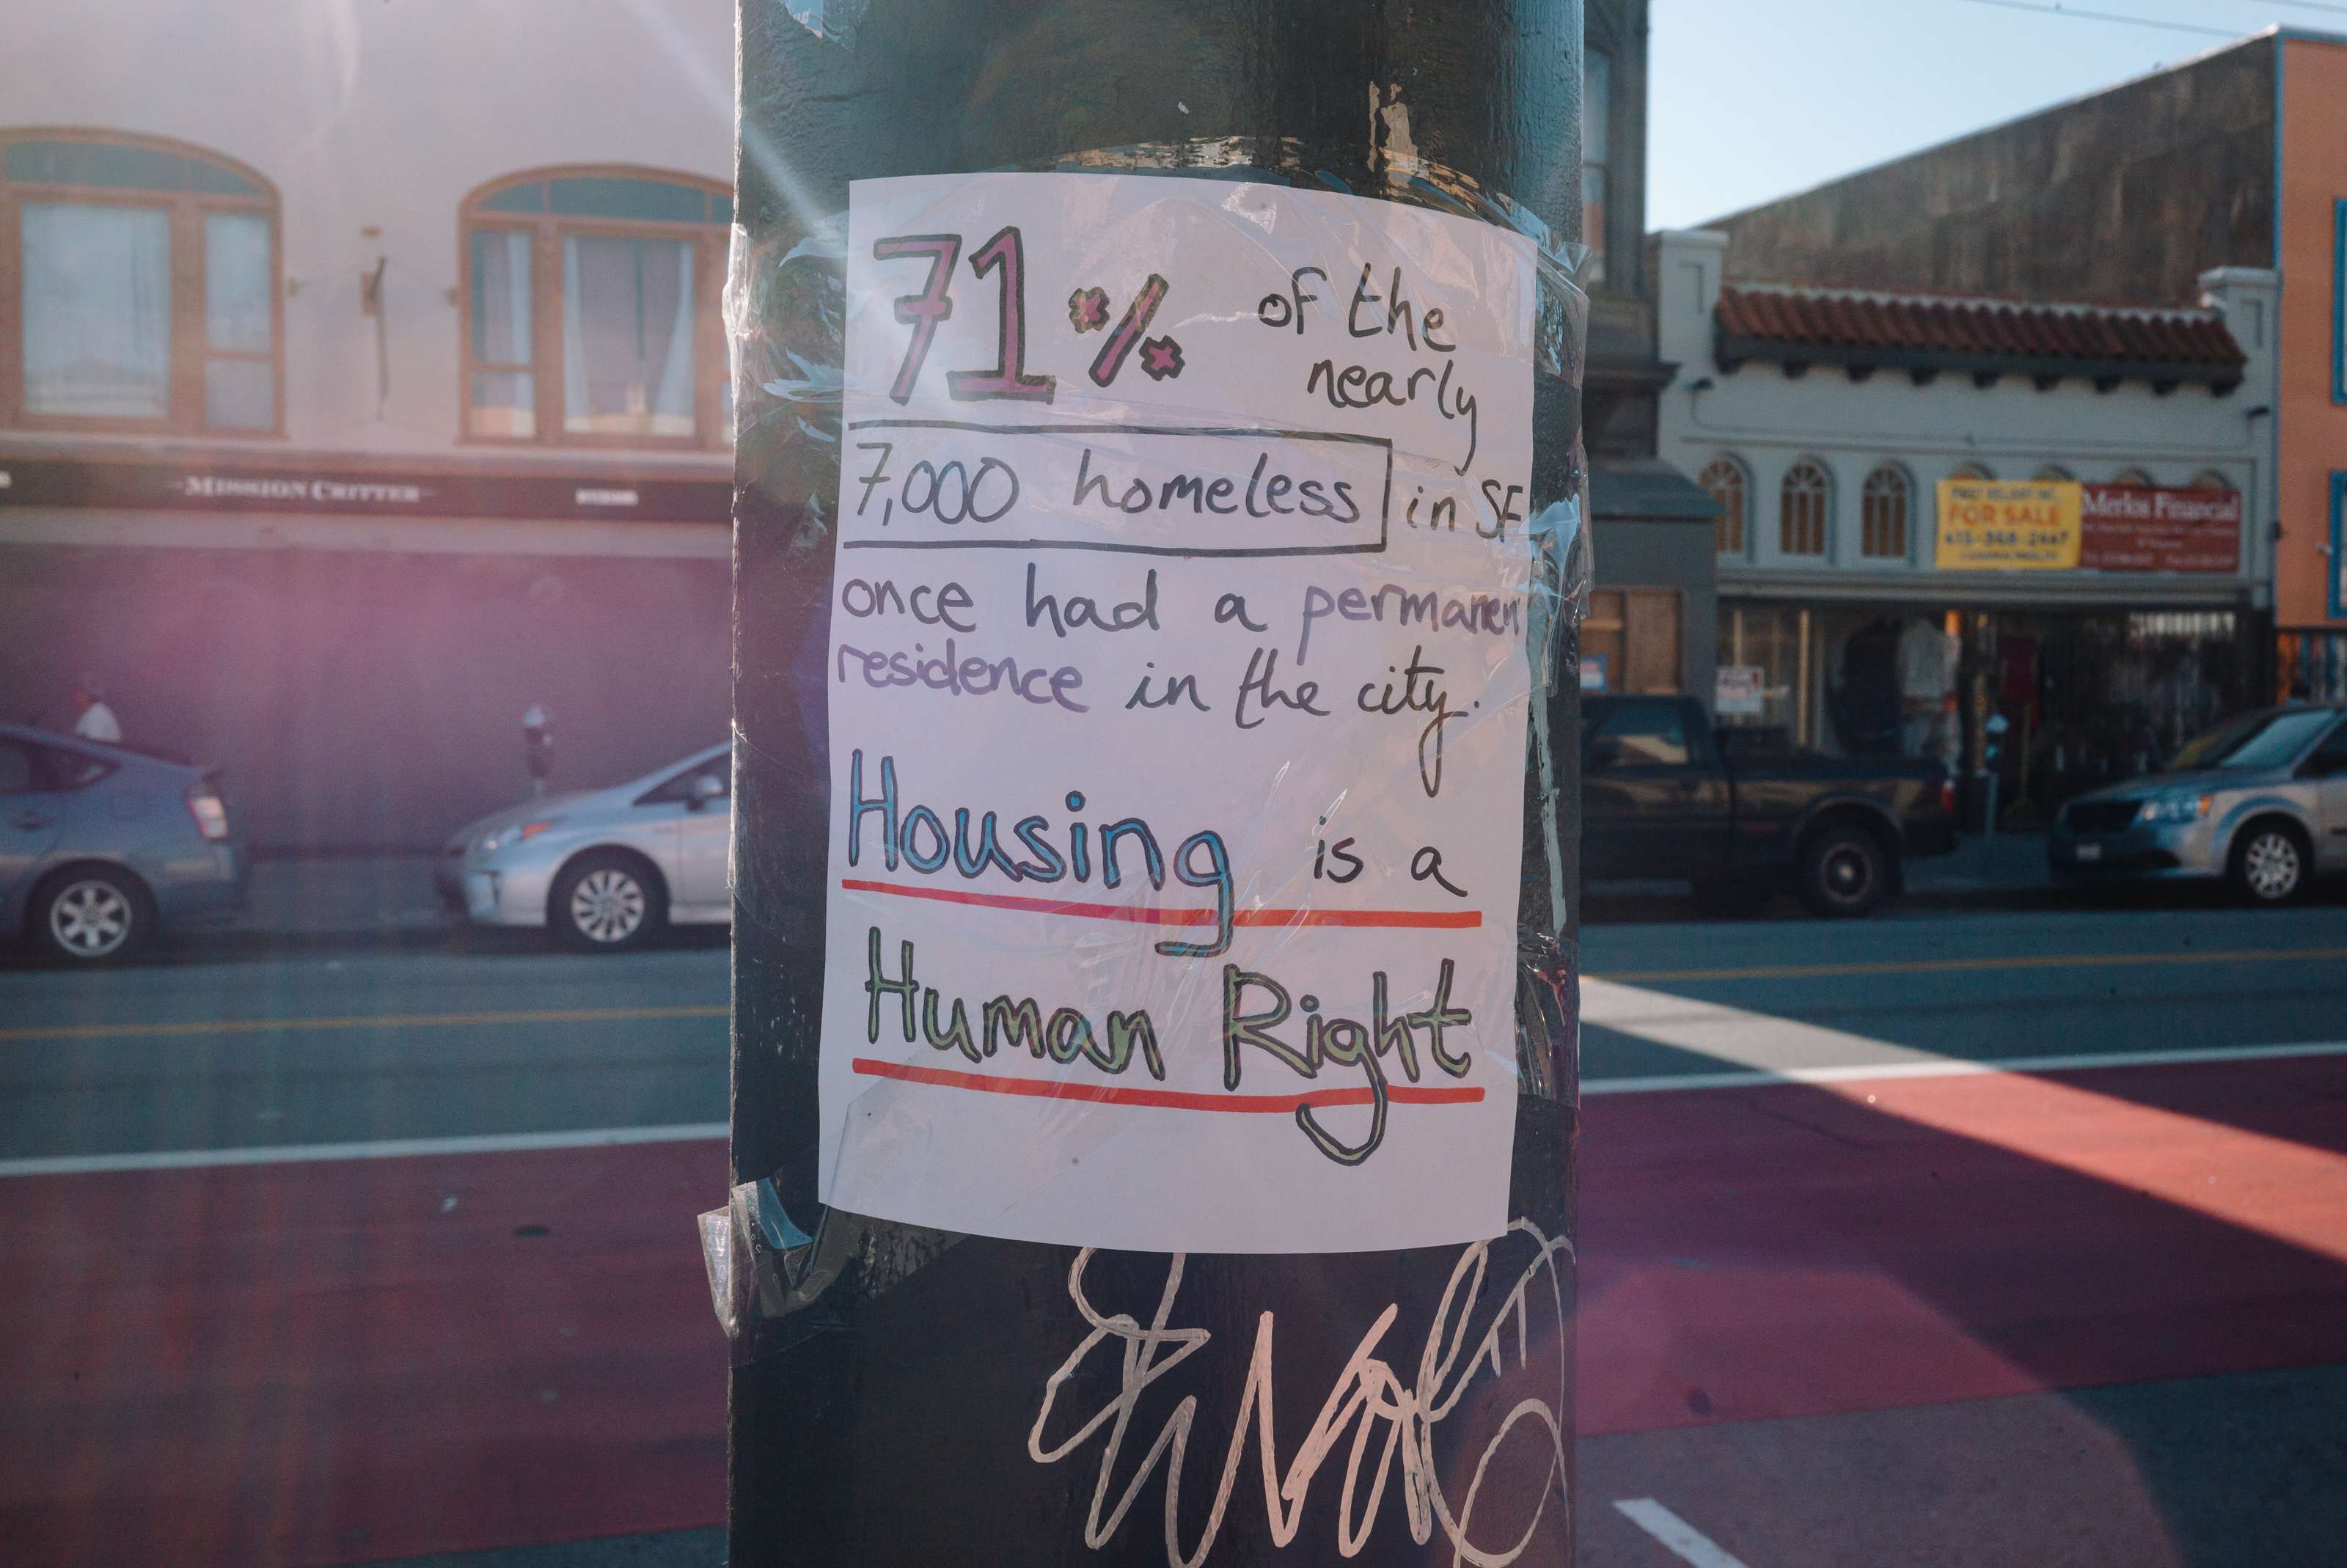 71% of the
nearly
7,000 homeless in SF
once had a permanen
residence in the city.
Housing is a
Human Right
MISSION CRITTER
FOR SALE
415-368-2447
Merlos Financial